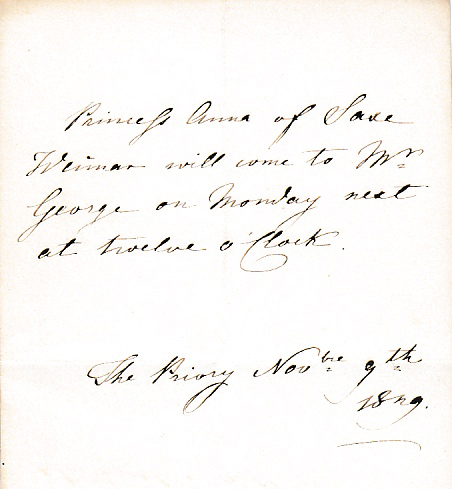 Princess Anna of Saxe
Weimar will come to Mr.
George on Monday next
at twelve o'Clock.
The Priory Novbre. 9th